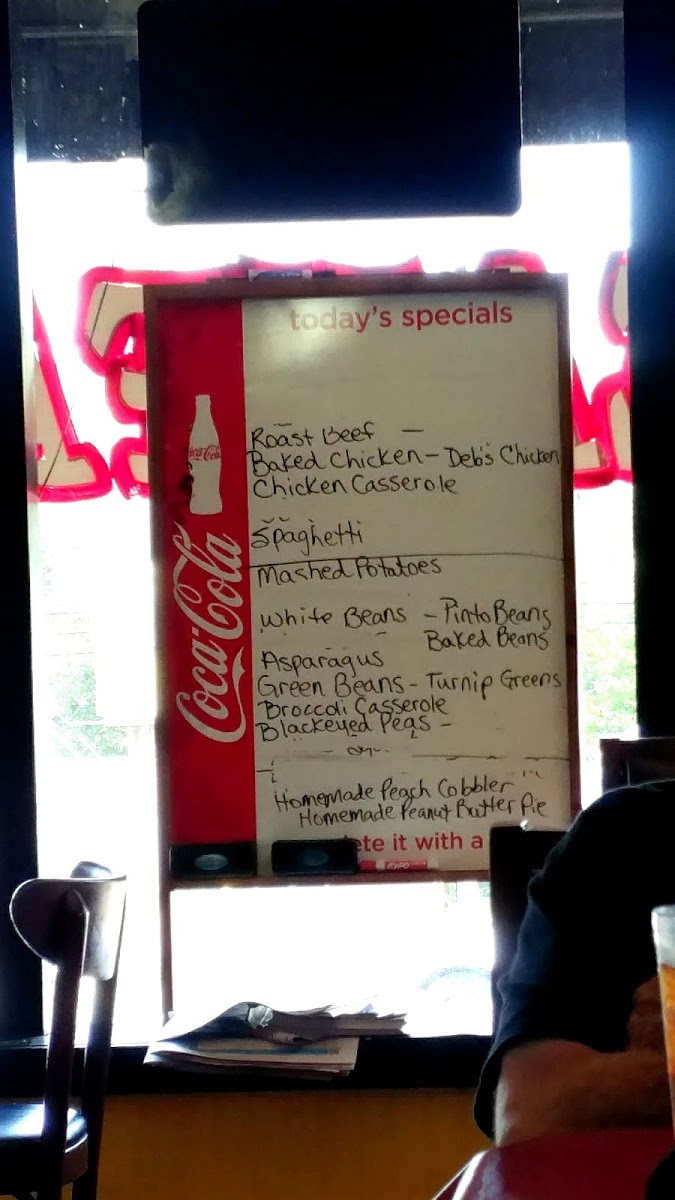 today's specials
Coca-Cola
Coca-Cola
Roast Beef —
Baked Chicken - Deb's Chicken
Chicken Casserole
Spaghetti
Mashed Potatoes
White Beans - Pinto Beans
Baked Beans
Asparagus
Green Beans - Turnip Greens
Broccoli Casserole
Blackeyed Peas -
Homemade Peach Cobbler
Homemade Peanut Butter Pie
ete it with a
EXPO